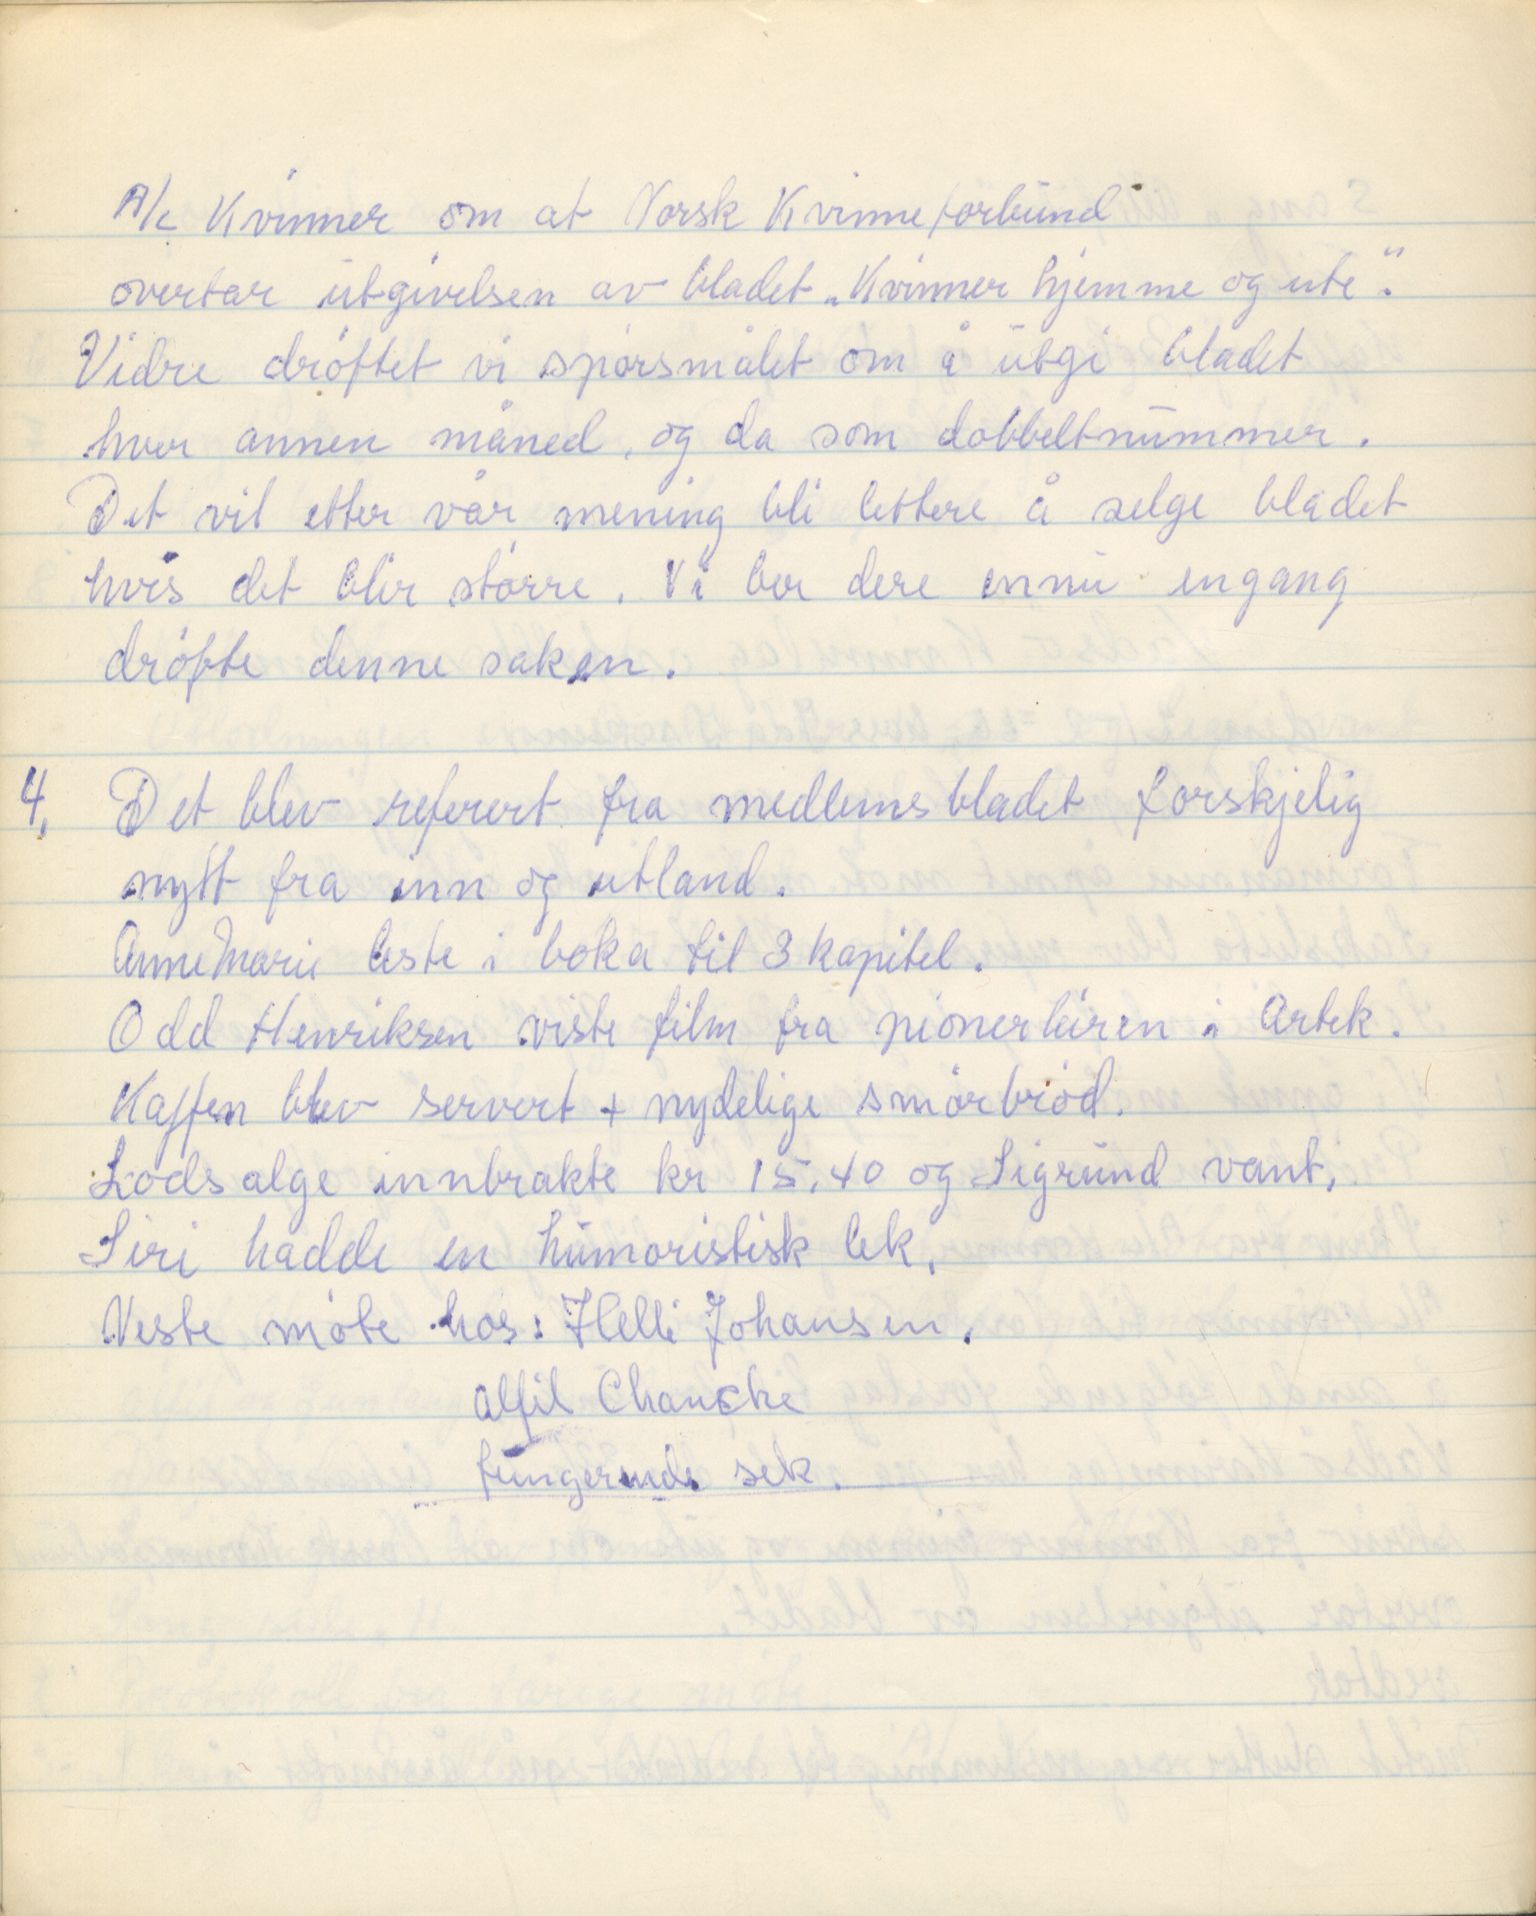 A/L Kvinner om at Norsk Kvinneforbund
overtar utgivelsen av bladet „Kvinner hjemme og ute".
Vidre drøftet vi spørsmålet om å utgi bladet
hver annen måned, og da som dobbeltnummer.
Det vil etter vår mening bli lettere å selge bladet
hvis det blir større. Vi ber dere ennu engang
drøfte denne saken.
4. Det blev referert fra medlemsbladet forskjelig
nytt fra inn og utland.
AnneMarie leste i boka til 3 kapitel.
Odd Henriksen viste film fra pionerleiren i Artek.
Kaffen blev servert + nydelige smørbrød.
Lodsalge innbrakte kr 15,40 og Sigrund vant.
Siri hadde en humoristisk lek.
Neste møte hos: Helli Johansen.
Alfil Chanche
fungerende sek.